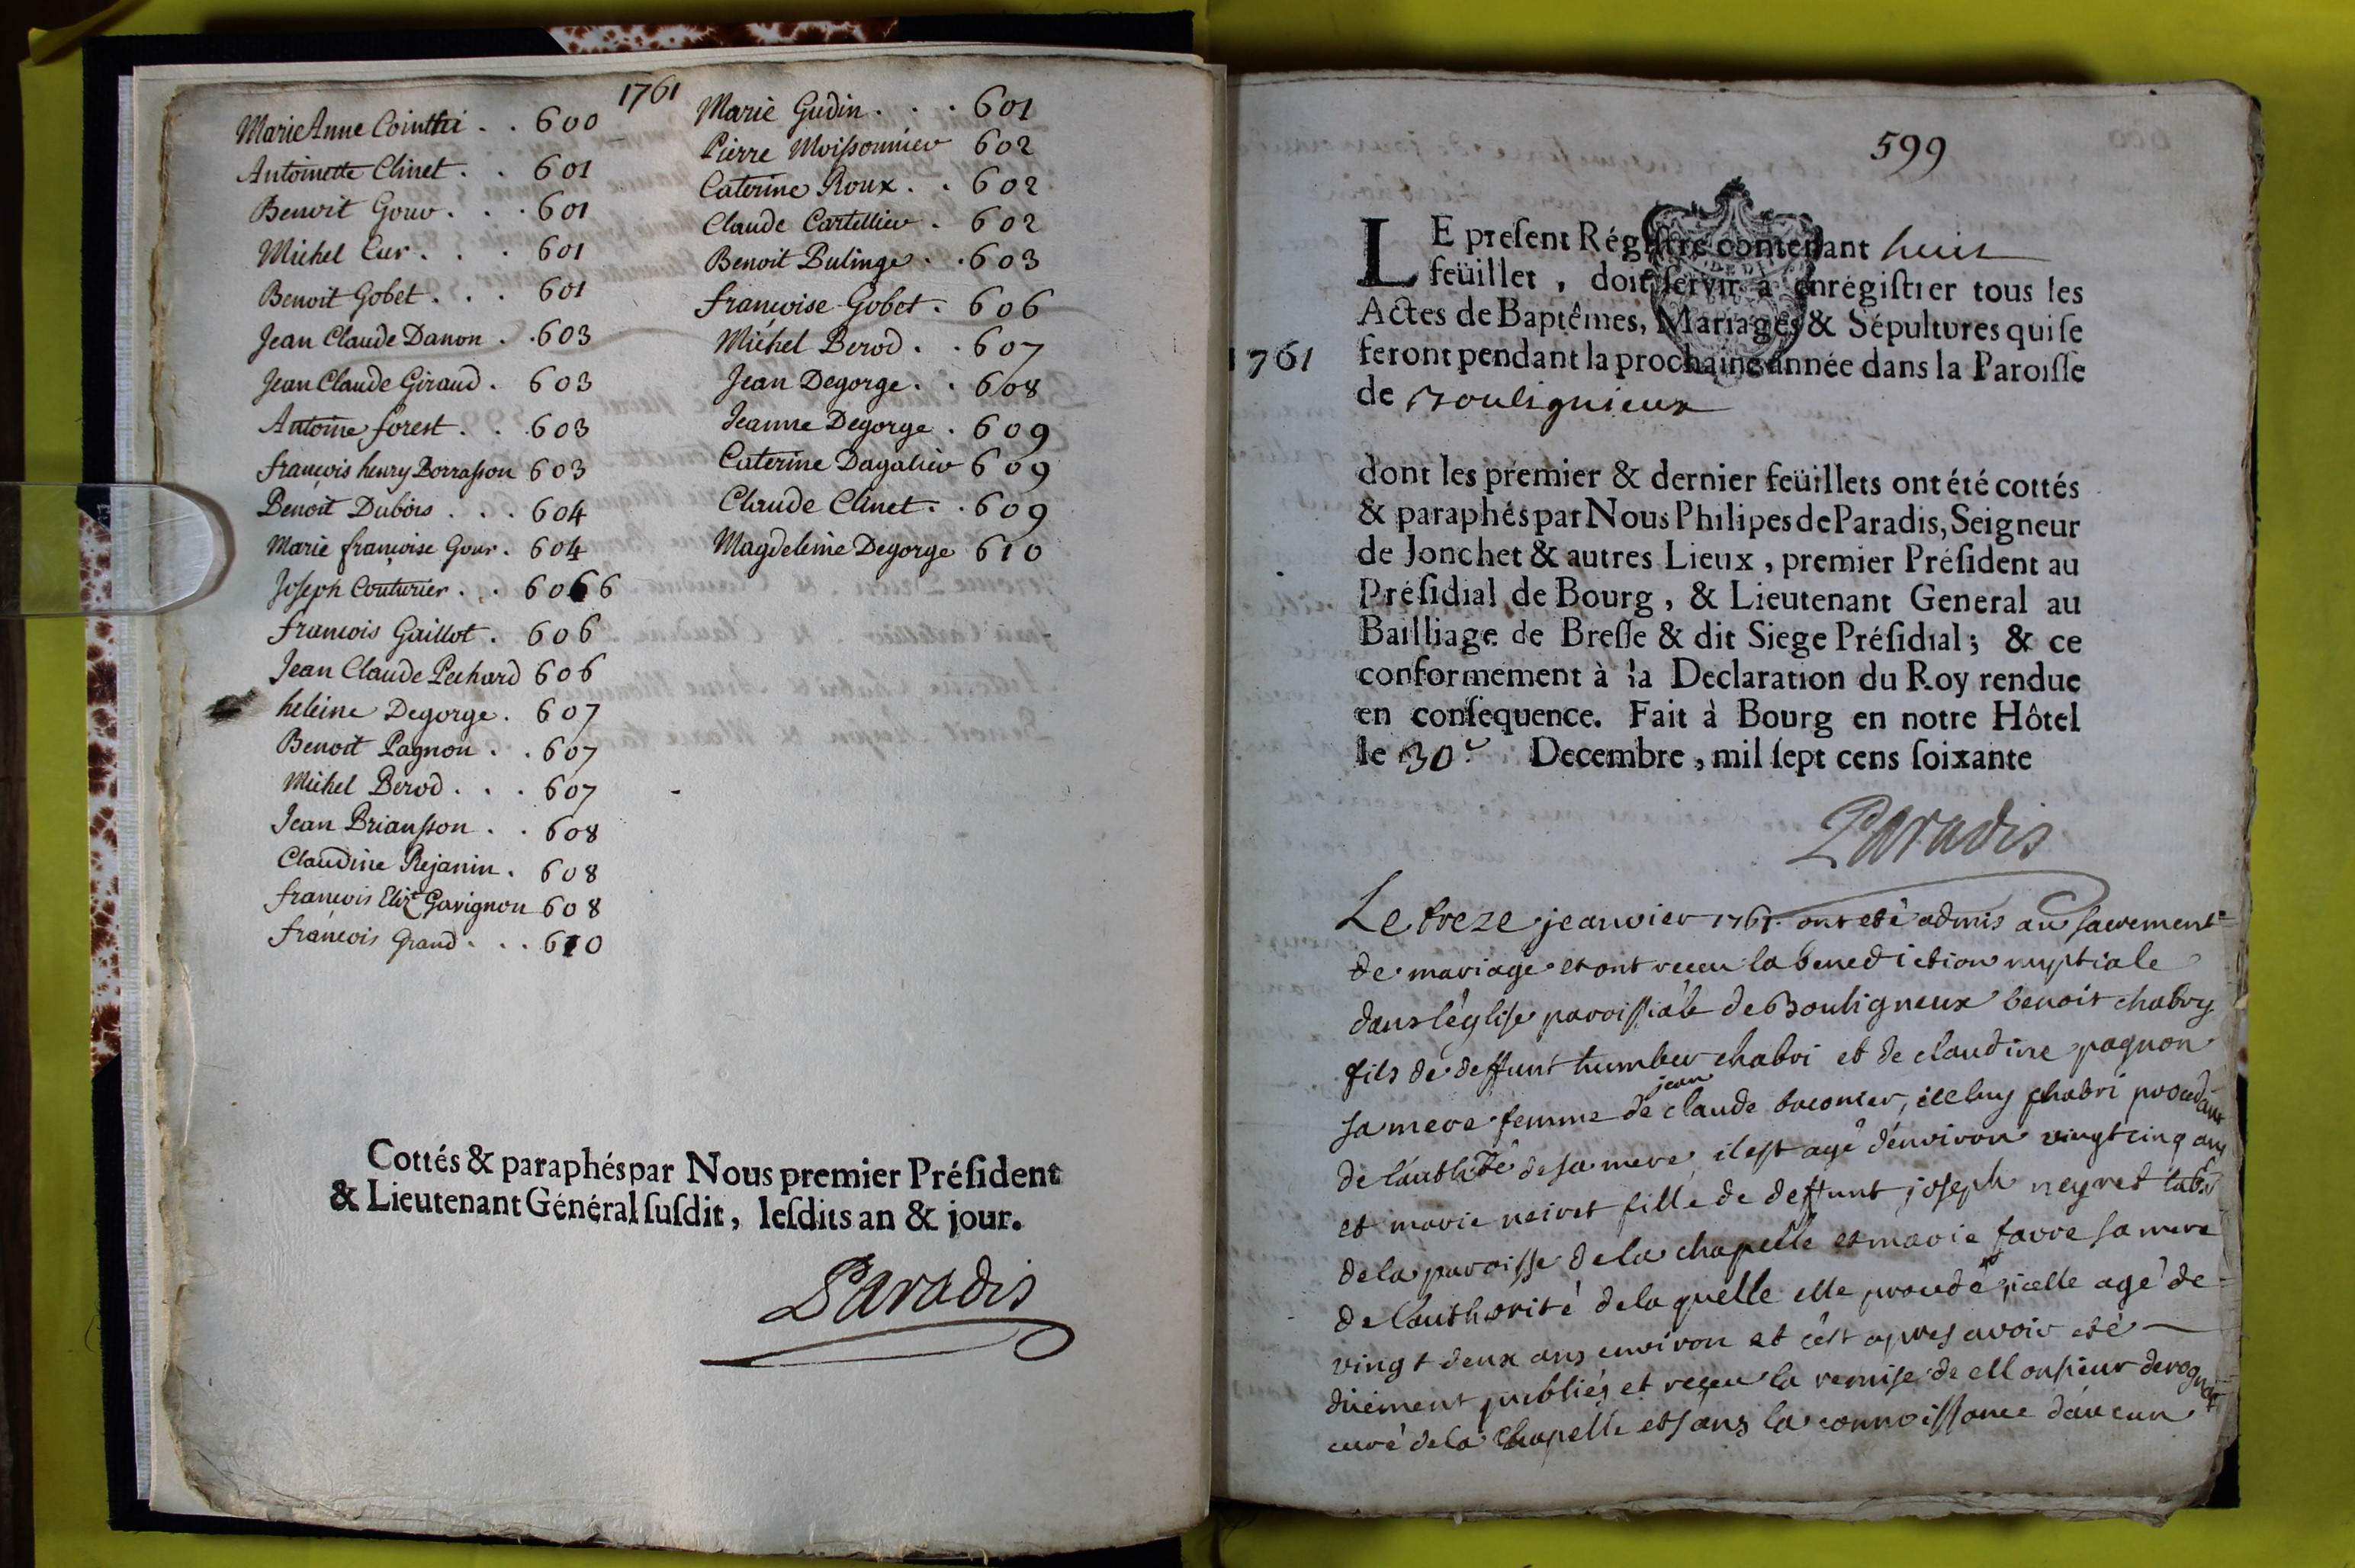 1761
Marie Anne Cointtri . . 600
Antoinette Clinet . . 601
Benoit Gouv . . . 601
Michel Cur . . . 601
Benoit Gobet . . . 601
Jean Claude Danon . . 603
Jean Claude Giraud . 603
Antoine forest . . . 603
françois henry Borrasson 603
Benoit Dubois . . . 604
Marie françoise Gour . 604
Joseph Couturier . . 6066
francois Gaillot . 606
Jean Claude Pechard 606
heleine Degorge . 607
Benoit Pagnon . . 607
Michel Berod . . . 607
Jean Briansson . . 608
Claudine Rejanin . 608
françois Eliz Gavignon 608
françois Grand . . . 610
Marie Gudin . . . 601
Pierre Moissonnier 602
Caterine Roux . . 602
Claude Cartellier . 602
Benoit Bulinge . . 603
françoise Gobet . 606
Michel Berod . . 607
Jean Degorge . . 608
Jeanne Degorge . 609
Caterine Dagalier 609
Claude Clinet . . 609
Magdeleine Degorge 610
Cottés & paraphés par Nous premier Préſident
& Lieutenant Général ſuſdit, leſdits an & jour.
Paradis
599
LE preſent Régiſtre contenant huit
feüillet , doit ſervir à enrégiſtrer tous les
Actes de Baptêmes, Mariages & Sépultures qui ſe
1761 feront pendant la prochaine année dans la Paroiſſe
de Boulignieux
dont les premier & dernier feüillets ont été cottés
& paraphés par Nous Philipes de Paradis, Seigneur
de Jonchet & autres Lieux , premier Préſident au
Préſidial de Bourg , & Lieutenant General au
Bailliage de Breſſe & dit Siege Préſidial ; & ce
conformement à la Declaration du Roy rendue
en conſequence. Fait à Bourg en notre Hôtel
le 30e Decembre , mil ſept cens ſoixante
Paradis
Le treze jeanvier 1761 ont eté admis au sacrement
de mariage et ont receu la benediction nuptiale
dans l'église paroissiale de Bouligneux benoit chabry
fils de deffunt humber chabri et de claudine pagnon
sa mere femme de jean claude , iceluy chabri procedant
de l'authté de sa mere, il est agé d'environ vingt cinq ans
et marie neiret fille de deffunt joseph neyret
de la paroisse de la chapelle et marie favre sa mere
de l'authorité de laquelle elle procede, icelle agé de
vingt deux ans environ et c'est apres avoir eté
düement publiés et receu la remise de Monsieur
curé de la Chapelle et sans la connoissance d'aucun